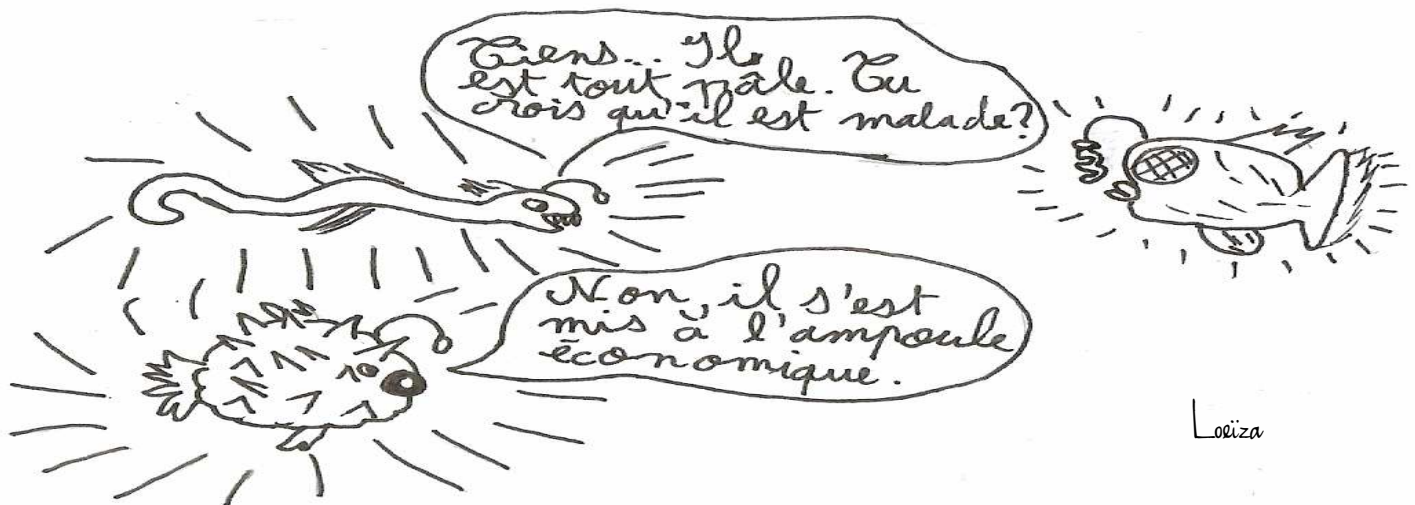 Tiens... Il
est tout pâle. Tu
crois qu'il est malade?
Non, il s'est
mis à l'ampoule
économique.
Loeïza